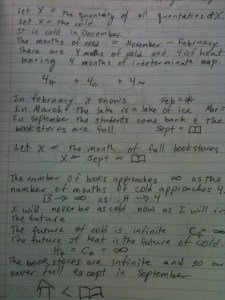 Let X = the quantity of all quantities of X.
Let X = the cold.
It is cold in December.
The months of cold = November - February
There are 4 months of cold and 4 of heat
leaving 4 months of indeterminate temp.
4H + 4C + 4~
In February it snows. Feb = *
In March the lake is a lake of ice Mar =
In September the students come back & the
bookstores are full. Sept =
Let X = the month of full bookstores.
X = Sept =
The number of books approaches ∞ as the
number of months of cold approaches 4.
B → ∞ as → 4
I will never be as cold now as I will in
the future
The future of cold is infinite CF = ∞
The future of heat is the future of cold.
HF = CF = ∞
The bookstores are infinite and so are
never full except in September